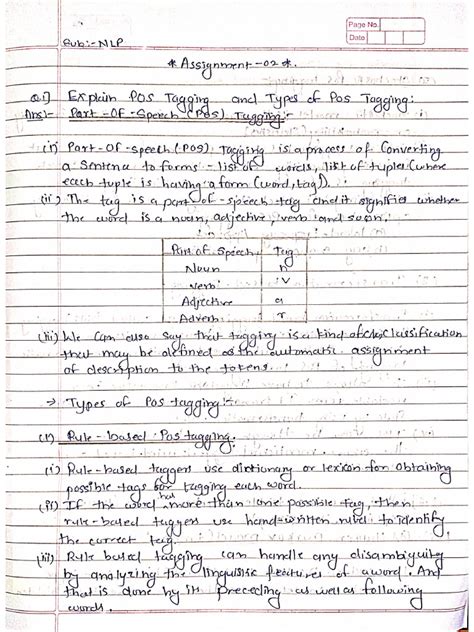 Page No.
Date
Sub:- NLP
* Assignment-02 *.
Q.1] Explain POS Tagging and Types of Pos Tagging:
Ans:- Part-Of-Speech (POS) Tagging:-
(i) Part-Of-speech (POS) Tagging is a process of Converting
a Sentence to forms - list of words, list of tuples (where
each tuple is having a form (word, tag)).
(ii) The tag is a part-of-speech tag and it signifies whether
the word is a noun, adjective, verb and so on.
Part of Speech Tag
Noun n
Verb v
Adjective a
Adverb r
(iii) We Can also say that tagging is a kind of classification
that may be defined as the automatic assignment
of description to the tokens.
→ Types of Pos tagging:-
(1) Rule-based Pos tagging.
(i) Rule-based taggers use dictionary or lexicon for obtaining
possible tags for tagging each word.
(ii) If the word has more than one possible tag, then
rule-based taggers use hand-written rules to identify
the correct tag.
(iii) Rule based tagging can handle any disambiguity
by analyzing the linguistic features of a word. And
that is done by its preceding as well as following
words.